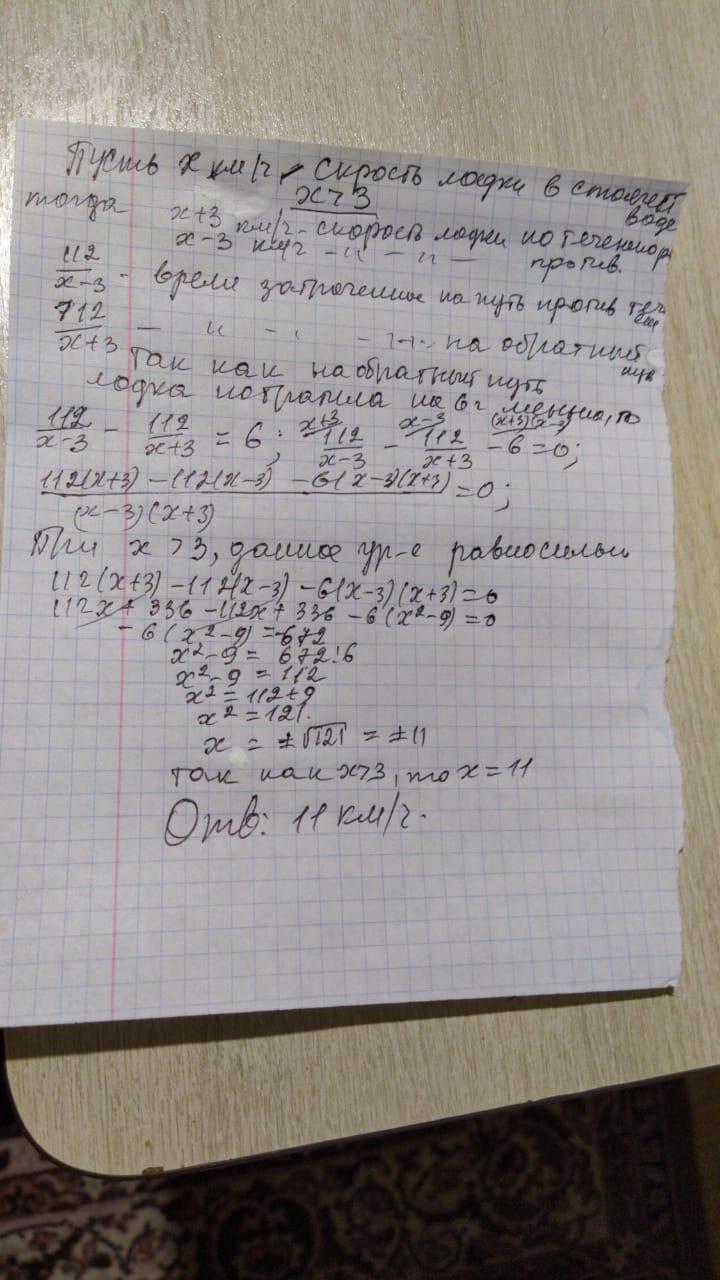 Пусть х км/ч, - скрость лодки в стоячей воде
тогда х>3
х+3 км/ч - скорость лодки по течению р
х-3 км/ч -"- -"- против.
112/(х-3) - время затраченное на путь против теч
112/(х+3) - " - " - " - на обратный путь
Так как на обратный путь
лодка потратила на 6ч меньше, то
112/(х-3) - 112/(х+3) = 6; 112/(х-3) (х+3) - 112/(х+3) (х-3) - 6 (х+3)(х-3) = 0;
(112(х+3) - 112(х-3) - 6(х-3)(х+3))/((х-3)(х+3)) = 0;
При х>3, данное ур-е равносильн
112(х+3) - 112(х-3) - 6(х-3)(х+3) = 0
112х + 336 - 112х + 336 - 6(х²-9) = 0
- 6(х²-9) = -672
х²-9 = 672:6
х²-9 = 112
х² = 112+9
х² = 121.
х = ±√121 = ±11
так как х>3, то х=11
Отв: 11 км/ч.